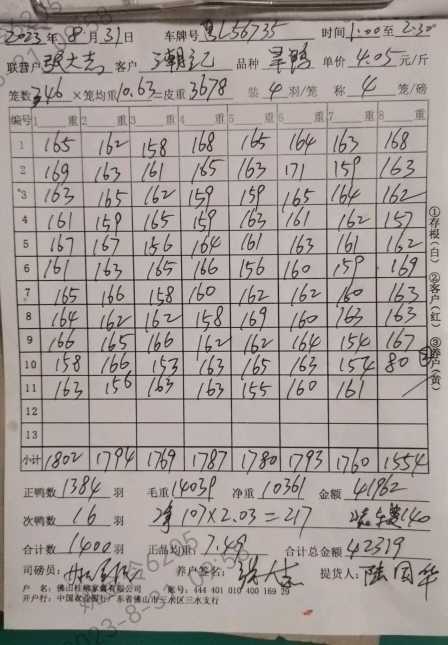 2023年8月31日 车牌号 L56735 时间1:00至2:30
联养户 张大志 客户 品种 单价 4.05元/斤
笼数346×笼均重10.63=皮重3678 装4羽/笼 称4笼/磅
编号 1 重 2 重 3 重 4 重 5 重 6 重 7 重 8 重
1 165 162 158 168 165 164 163 168
2 169 163 161 165 163 171 159 163
3 163 165 162 159 159 165 164 162
4 161 159 165 159 163 161 162 157
5 167 167 156 164 161 163 161 162
6 161 163 165 166 156 160 159 169
7 165 166 158 160 162 162 160 163
8 164 162 162 158 169 160 163 163
9 166 165 166 162 162 164 154 167
10 158 166 153 163 165 163 154 80
11 163 156 163 163 155 160 161
12
13
小计 1802 1794 1769 1787 1780 1793 1760 1554
①存根(白) ②客户(红) ③养户(黄)
正鸭数 1384 羽 毛重 14039 净重 10361 金额 41962
次鸭数 16 羽 净107×2.03=217 140
合计数 1400 羽 正品均重: 7.49 合计总金额 42319
司磅员: 养户签名: 张大志 提货人: 陆国华
户 名: 佛山桂柳家禽有限公司 账号: 444 401 010 400 169 29
开户行: 中国农业银行广东省佛山市三水区三水支行